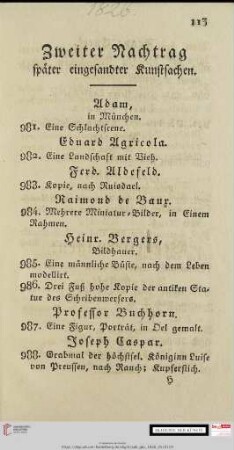 1820
113
Zweiter Nachtrag
später eingesandter Kunstsachen.
Adam,
in München.
981. Eine Schlachtscene.
Eduard Agricola.
982. Eine Landschaft mit Vieh.
Ferd. Aldefeld.
983. Kopie, nach Ruisdael.
Raimond de Baux.
984. Mehrere Miniatur-Bilder, in Einem
Rahmen.
Heinr. Bergers,
Bildhauer.
985. Eine männliche Büste, nach dem Leben
modellirt.
986. Drei Fuß hohe Kopie der antiken Sta-
tue des Scheibenwerfers.
Professor Buchhorn.
987. Eine Figur, Porträt, in Oel gemalt.
Joseph Caspar.
988. Grabmal der höchstsel. Königinn Luise
von Preussen, nach Rauch; Kupferstich.
H